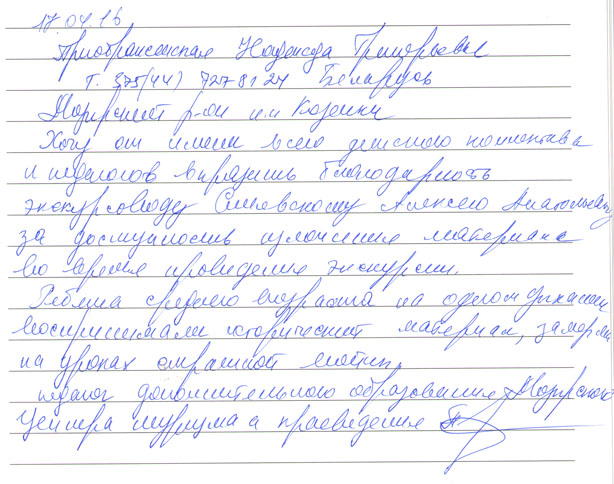 17.04.16
Приображенская Надежда Григорьевна
т. 375(44) 7278127 Беларусь
р-он
Хочу от имени всего детского коллектива
и педагогов выразить благодарность
экскурсоводу Алексею Анатольевичу
за доступность изложения материала
во время проведения экскурсии.
Ребята среднего возраста на одном дыхании
воспринимали исторический материал,
на уроках
педагог дополнительного образования Мозырского
Центра туризма и краеведения